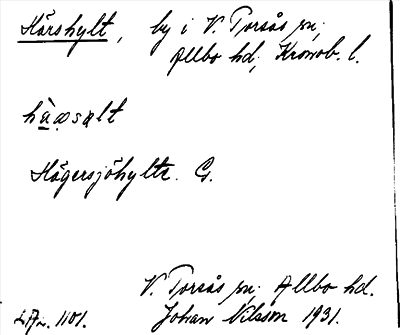 Hårshylt, by i V. Torsås sn.
Allbo hd, Kronob. l.
Hägersjöhylte. G.
V. Torsås sn. Allbo hd.
Johan Nilsson 1931.
1101.